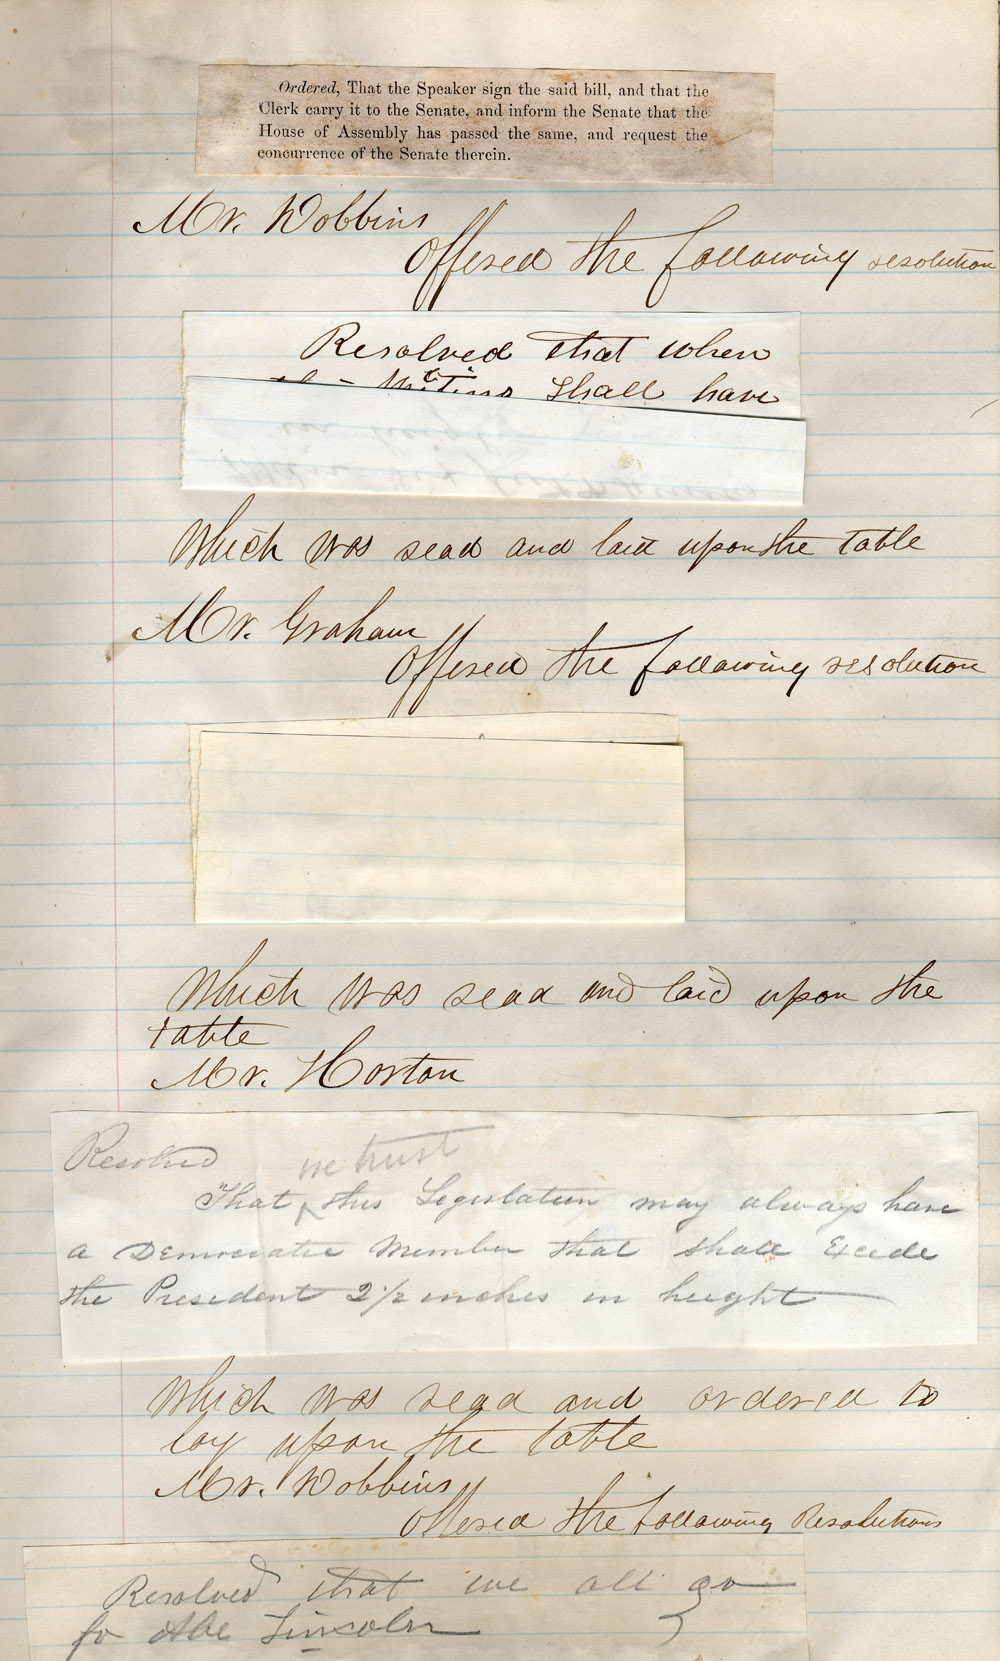 Ordered, That the Speaker sign the said bill, and that the
Clerk carry it to the Senate, and inform the Senate that the
House of Assembly has passed the same, and request the
concurrence of the Senate therein.
Mr. Dobbins
Offered the following resolution
Resolved that when
shall have
Which was read and laid upon the table
Mr. Graham
Offered the following resolution
Which was read and laid upon the
table
Mr. Horton
Resolved we trust
That ^ this Legislature may always have
a Democratic Member that shall Excede
the President 2 1/2 inches in height
Which was read and ordered to
lay upon the table
Mr. Dobbins
Offered the following Resolutions
Resolved that we all go
fo Abe Lincoln